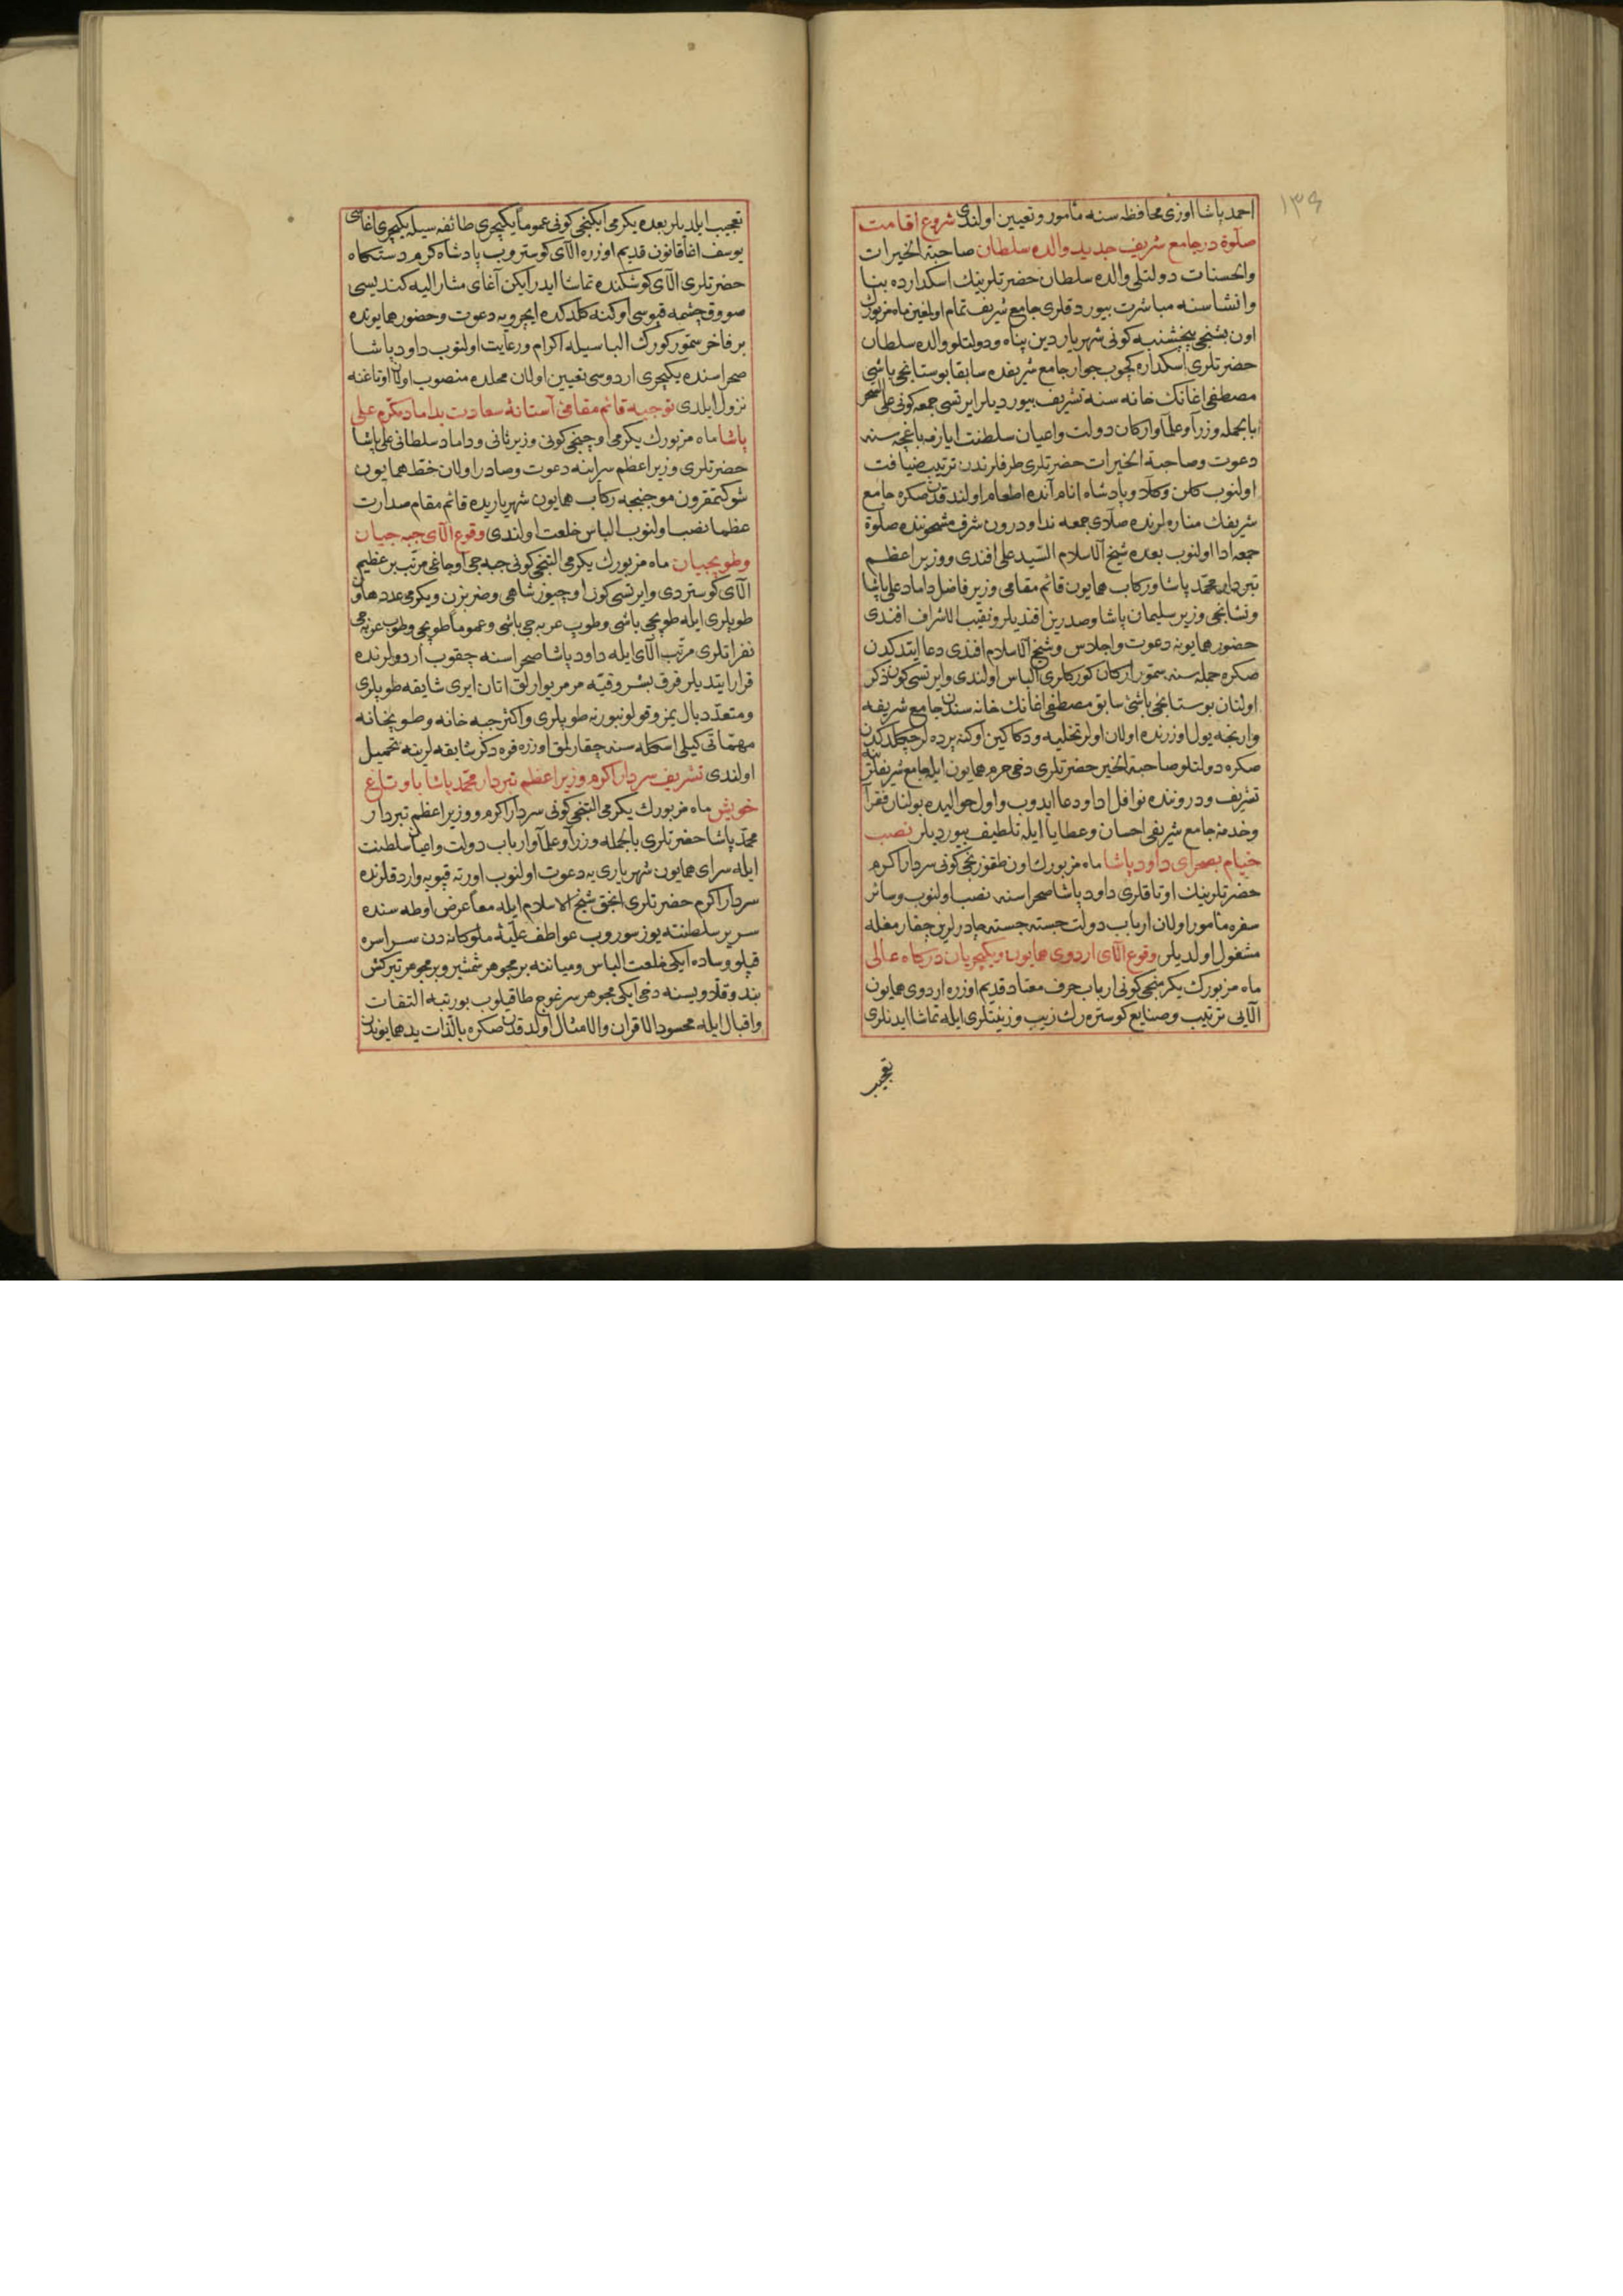 ۱۳۶
احمد پاشا اوزی محافظه سنه مأمور و تعیین اولندی شروع اقامت
صلوة در جامع شریف جدید والده سلطان صاحبة الخیرات
والحسنات دولتلی والده سلطان حضرتلرینك اسکدارده بنا
وانشاسنه مباشرت بیوردقلری جامع شریف تمام اولغین ماه مزبورك
اون بشنجی پنجشنبه کونی شهریار دین پناه و دولتلو والده سلطان
حضرتلری اسکداره کچوب جوار جامع شریفده سابقا بوستانجی باشی
مصطفی اغانك خانه سنه تشریف بیوردیلر ایرتسی جمعه کونی علی السحر
بالجمله وزرا و علما و ارکان دولت و اعیان سلطنت ایازمه باغچه سنه
دعوت و صاحبة الخیرات حضرتلری طرفلرندن ترتیب ضیافت
اولنوب کلن وکلا و پادشاه انام آنده اطعام اولندقدن صکره جامع
شریفك مناره لرنده صلای جمعه ندا و درون شرف مشحوننده صلوة
جمعه ادا اولنوب بعده شیخ الاسلام السید علی افندی و وزیر اعظم
تبردار محمد پاشا و رکاب همایون قائم مقامی وزیر فاضل داماد علی پاشا
و نشانجی وزیر سلیمان پاشا و صدرین افندیلر و نقیب الاشراف افندی
حضور همایونه دعوت و اجلاس و شیخ الاسلام افندی دعا ایتدکدن
صکره جمله سنه سمور ارکان کورکلری الباس اولندی و ایرتسی کون ذکر
اولنان بوستانجی باشی سابق مصطفی اغانك خانه سندن جامع شریفه
وارنجه یول اوزرنده اولان اولر تخلیه و دکاکین اوکنه پرده لر چکلدکدن
صکره دولتلو صاحبة الخیر حضرتلری دخی حرم همایون ایله جامع شریفلرینه
تشریف و دروننده نوافل ادا و دعا ایدوب و اول حوالیده بولنان فقرا
و خدمة جامع شریفی احسان و عطایا ایله تلطیف بیوردیلر نصب
خیام بصحرای داود پاشا ماه مزبورك اون طقوزنجی کونی سردار اکرم
حضرتلرینك اوتاقلری داود پاشا صحراسنه نصب اولنوب و سائر
سفره مأمور اولان ارباب دولت جسته جسته چادرلرین چقارمغله
مشغول اولدیلر وقوع الای اردوی همایون و یکیچریان درکاه عالی
ماه مزبورك یکرمنجی کونی ارباب حرف معتاد قدیم اوزره اردوی همایون
الایی ترتیب و صنایع کوستره رك زیب و زینتلری ایله تماشا ایدنلری
تعجیب
تعجیب ایلدیلر بعده یکرمی ایکنجی کونی عموما یکیچری طائفه سیله یکیچری اغاسی
یوسف اغا قانون قدیم اوزره الای کوستروب پادشاه کرم دستکاه
حضرتلری الای کوشکنده تماشا ایدر ایکن آغای مشار الیه کندیسی
صووق چشمه قپوسی اوکنه کلدکده ایچرویه دعوت و حضور همایونده
بر فاخر سمور کورك الباسیله اکرام و رعایت اولنوب داود پاشا
صحراسنده یکیچری اردوسی تعیین اولان محلده منصوب اولان اوتاغنه
نزول ایلدی توجیه قائم مقامی آستانۀ سعادت بداماد مکرم علی
پاشا ماه مزبورك یکرمی اوچنجی کونی وزیر ثانی و داماد سلطانی علی پاشا
حضرتلری وزیر اعظم سراینه دعوت و صادر اولان خط همایون
شوکتمقرون موجبنجه رکاب همایون شهریاریده قائم مقام صدارت
عظما نصب اولنوب الباس خلعت اولندی وقوع الای جبه جیان
وطوپجیان ماه مزبورك یکرمی التنجی کونی جبه جی اوجاغی مرتب بر عظیم
الای کوستردی و ایرتسی کون اوچیوز شاهی و ضربزن و یکرمی عدد هاون
طوپلری ایله طوپجی باشی و طوپ عربه جی باشی و عموما طوپجی و طوپ عربه جی
نفراتلری مرتب الای ایله داود پاشا صحراسنه چقوب اردولرنده
قرار ایتدیلر قرق بشر وقیه مرمر یوارلق اتان ایری شایقه طوپلری
و متعدد بال یمز و قولونبورنه طوپلری و اکثر جبه خانه و طوپخانه
مهماتی کیلی اسکله سنه چقارلمق اوزره قره دکز شایقه لرینه تحمیل
اولندی تشریف سردار اکرم وزیر اعظم تبردار محمد پاشا باوتاغ
خویش ماه مزبورك یکرمی التنجی کونی سردار اکرم و وزیر اعظم تبردار
محمد پاشا حضرتلری بالجمله وزرا و علما و ارباب دولت و اعیان سلطنت
ایله سرای همایون شهریاری یه دعوت اولنوب اورته قپویه واردقلرنده
سردار اکرم حضرتلری انجق شیخ الاسلام ایله معا عرض اوطه سنده
سریر سلطنته یوز سوروب عواطف علیۀ ملوکانه دن سراسره
قپلو و ساده ایکی خلعت الباس و میاننه بر مجوهر شمشیر و بر مجوهر تیرکش
بند و قلاویسنه دخی ایکی مجوهر سرغوج طاقیلوب بو رتبه التفات
و اقبال ایله محسود الاقران والامثال اولدقدن صکره بالذات ید همایوندن